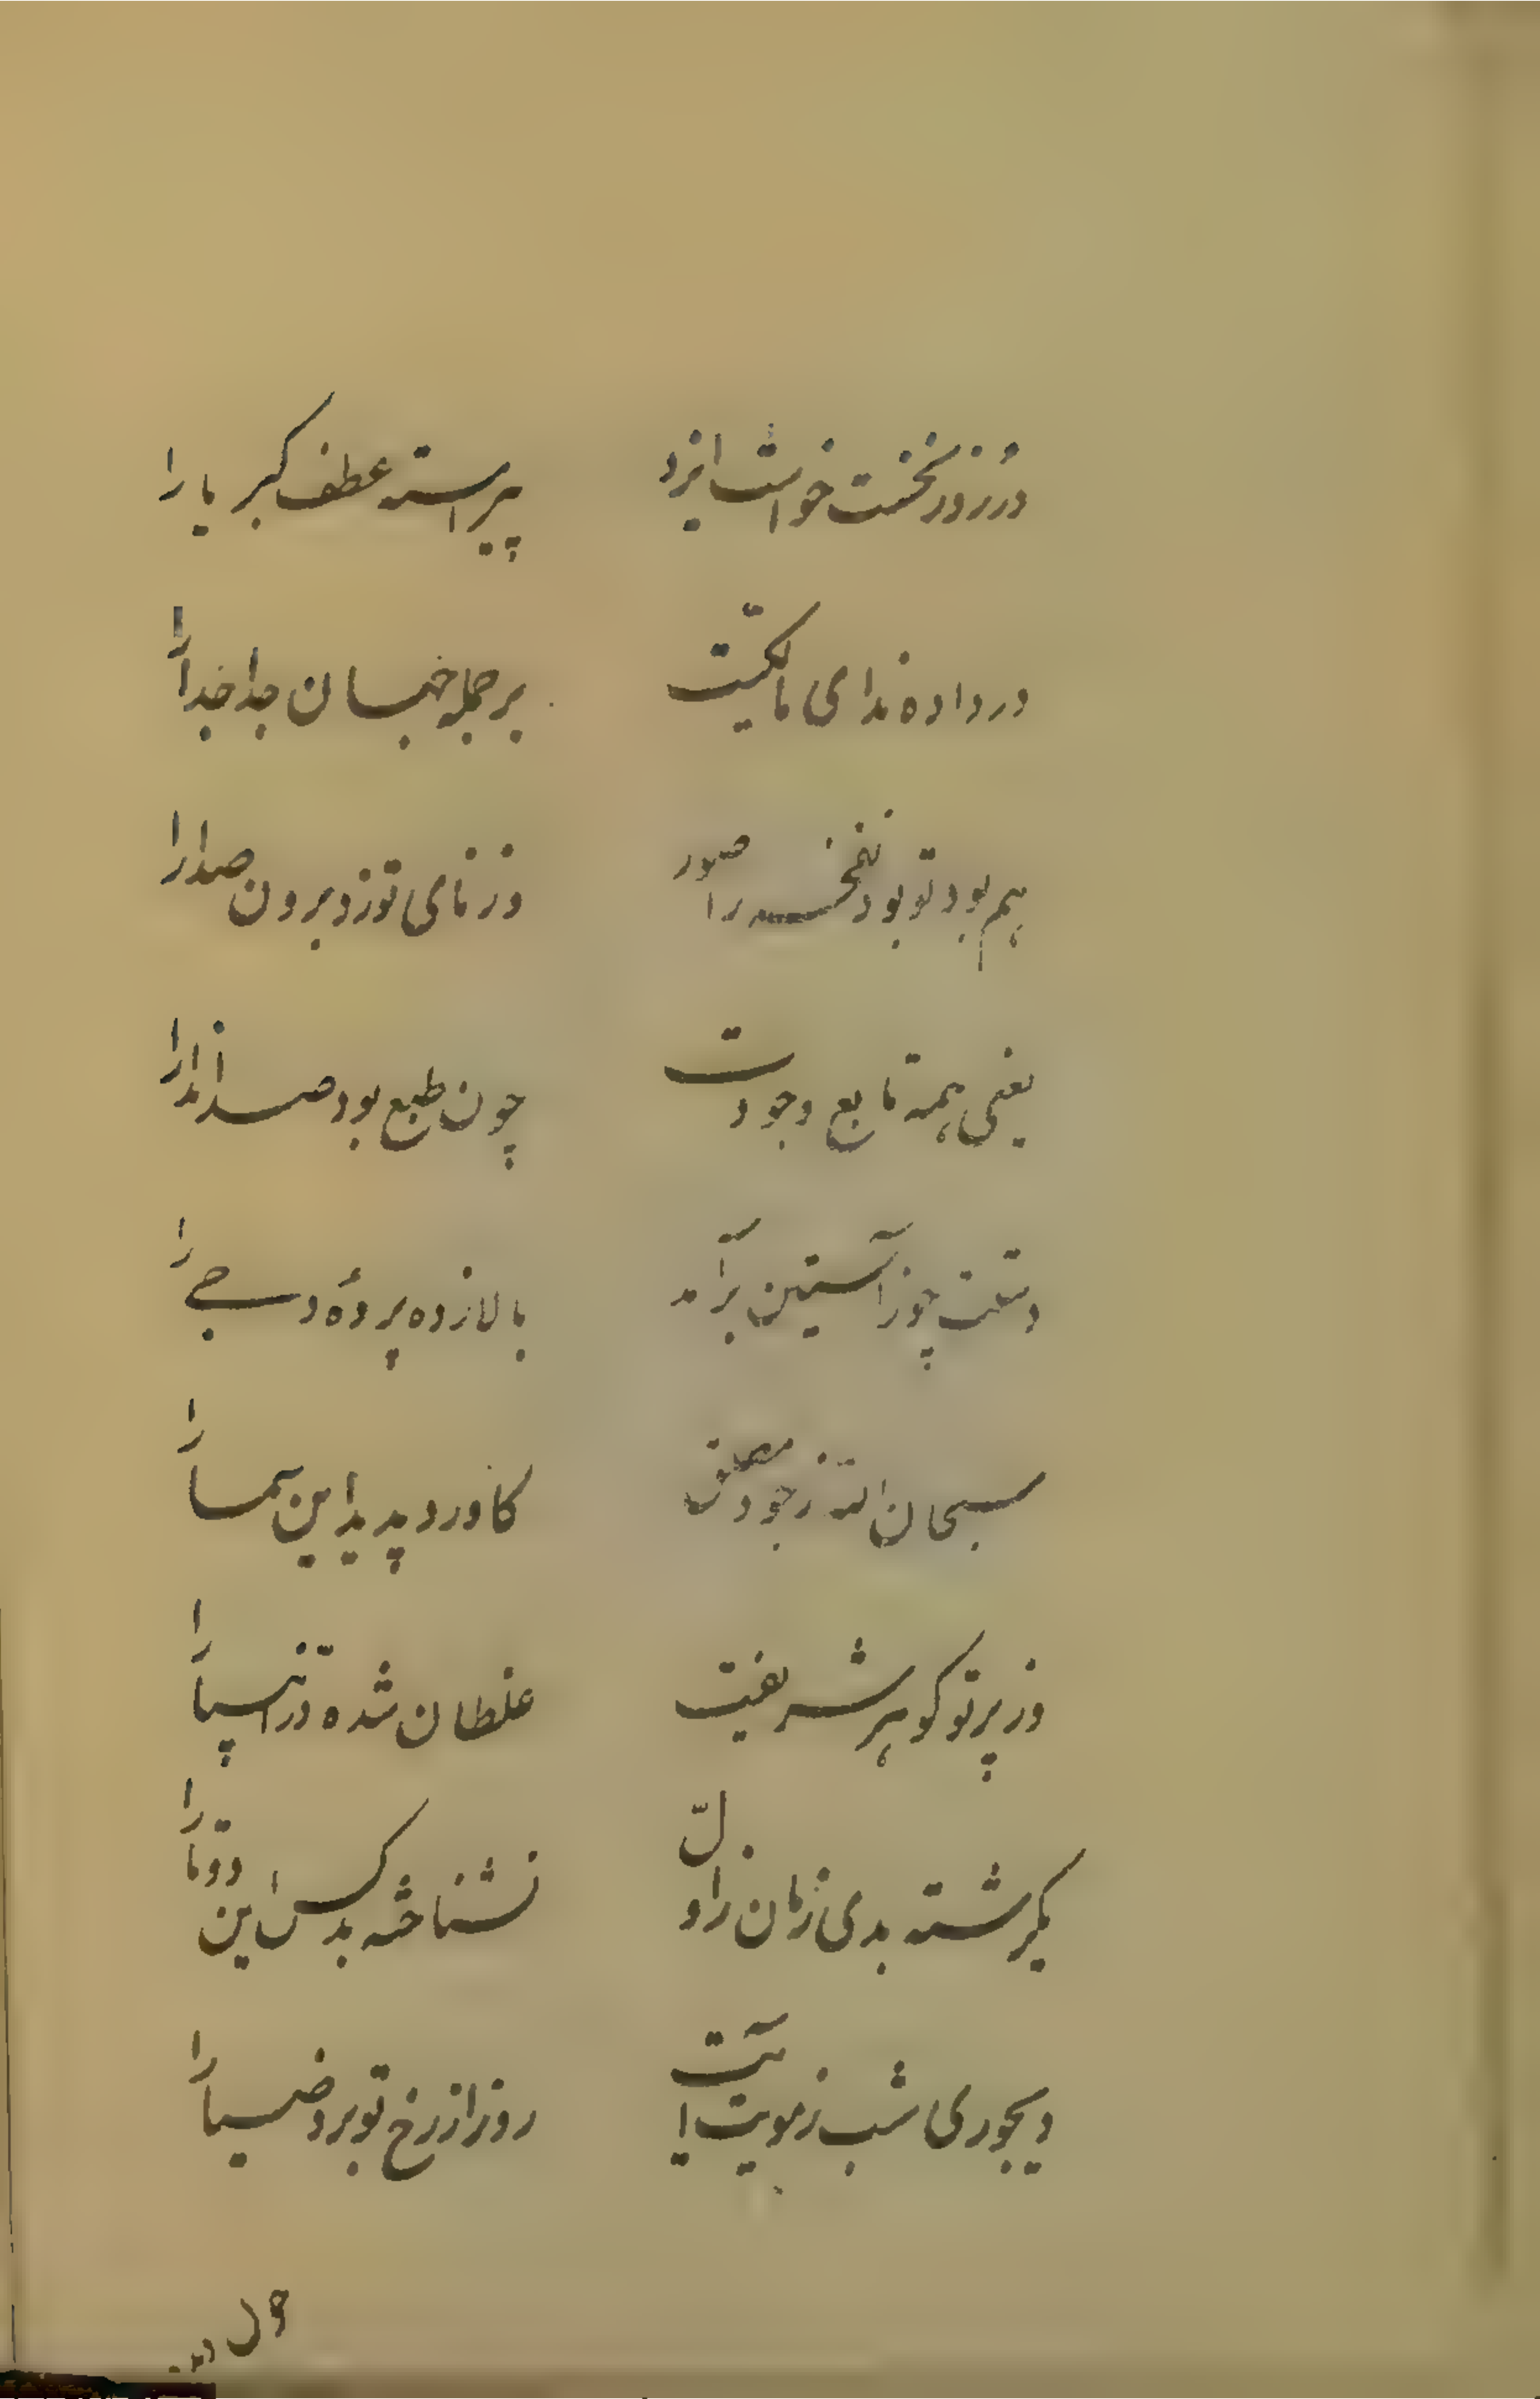 در روز نخست خواست ایزد پیراسته عطف کبریا را
در داده ندای مالکیّت بر جمله جهان جدا جدا را
هم بود تو بود نفخه را صور وز نای تو زد برون صدا را
یعنی همه تابع وجودت چون طبع بود صدا ندا را
دستت چو ز آستین برآمد بالا زده پردهٔ دجی را
سبحان الله ز جود کاورد پدید این سما را
وز پرتو گوهر شریفیت غلطان شده در آسیا را
سرشته بدی زمان ز اوّل نشناخته بد کس این دوتا را
دیجوری شب ز مویت آیت روز از رخ تو برد ضیا را